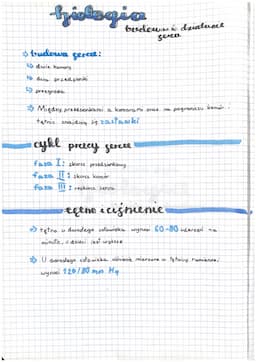 biologia
budowa i działanie
serca
budowa serca:
dwie komory
dwa przedsionki
przegroda
Między przedsionkami a komorami oraz na pograniczu komór i
tętnic znajdują się zastawki
cykl pracy serca
faza I: skurcz przedsionków
faza II: skurcz komór
faza III: rozkurcz serca
tętno i ciśnienie
tętno u dorosłego człowieka wynosi 60-80 uderzeń na
minutę, u dzieci jest wyższe
U dorosłego człowieka ciśnienie mierzone w tętnicy ramiennej
wynosi 120/80 mm Hg